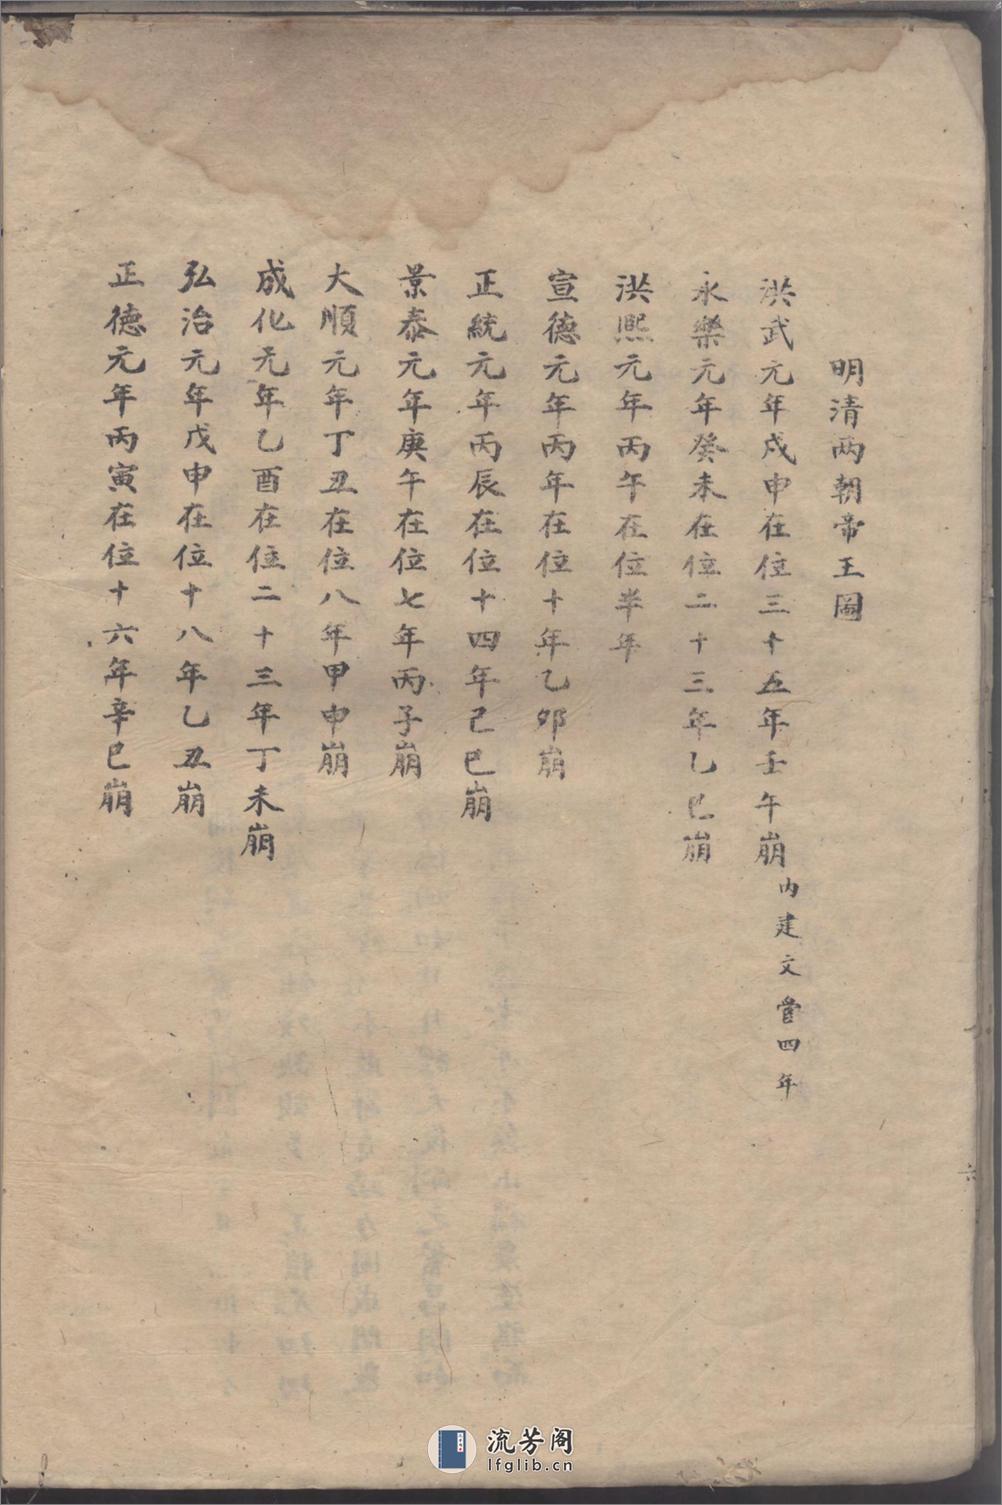 明清两朝帝王圖
洪武元年戍申在位三十五年壬午崩 内建文當四年
永樂元年癸未在位二十三年乙巳崩
洪熙元年丙午在位半年
宣德元年丙年在位十年乙卯崩
正統元年丙辰在位十四年己巳崩
景泰元年庚午在位七年丙子崩
大順元年丁丑在位八年甲申崩
成化元年乙酉在位二十三年丁未崩
弘治元年戊申在位十八年乙丑崩
正德元年丙寅在位十六年辛巳崩
六
流芳阁
lfglib.cn